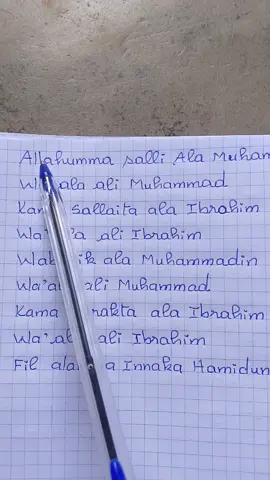 Allahumma salli Ala Muham
ala ali Muhammad
Kam sallaita ala Ibrahim
ali Ibrahim
ik ala Muhammadin
Wa'a ali Muhammad
Kama rakta ala Ibrahim
Wa'al ali Ibrahim
Fil ala a Innaka Hamidun